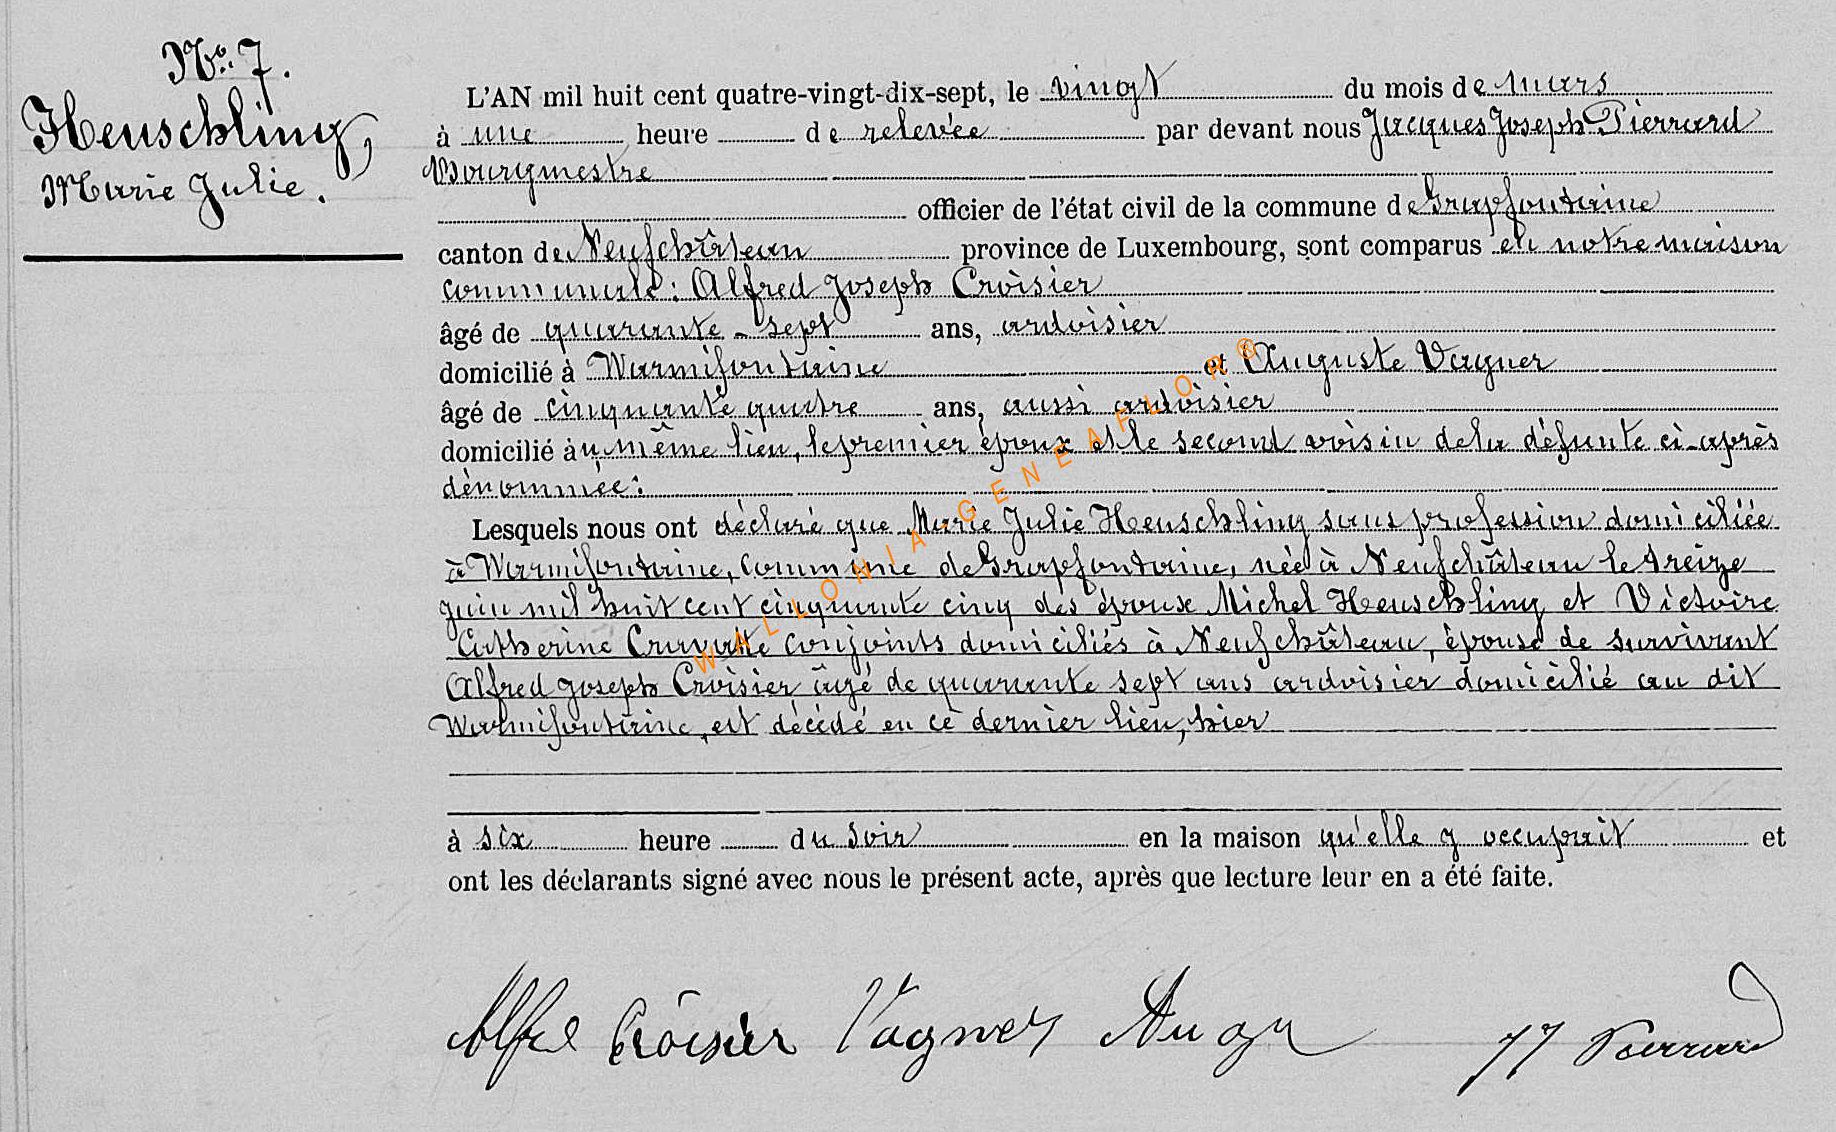 No. 7.
Heuschling,
Marie Julie.
L'AN mil huit cent quatre-vingt-dix-sept, le vingt du mois de mars
à une heure de relevée par devant nous Jacques Joseph Pierrard
Bourgmestre
officier de l'état civil de la commune de Grapfontaine
canton de Neufchâteau province de Luxembourg, sont comparus en notre maison
communale: Alfred Joseph Croisier
âgé de quarante-sept ans, ardoisier
domicilié à Warmifontaine et Auguste Vagner
âgé de cinquante quatre ans, aussi ardoisier
domicilié au même lieu, le premier époux et le second voisin de la défunte ci-après
dénommée:
Lesquels nous ont déclaré que Marie Julie Heuschling sans profession domiciliée
à Warmifontaine, commune de Grapfontaine, née à Neufchâteau le treize
juin mil huit cent cinquante cinq des époux Michel Heuschling et Victoire
Catherine conjoints domiciliés à Neufchâteau, épouse de survivant
Alfred Joseph Croisier âgé de quarante sept ans ardoisier domicilié au dit
Warmifontaine, est décédé en ce dernier lieu, hier
à six heure du soir en la maison qu'elle y occupait et
ont les déclarants signé avec nous le présent acte, après que lecture leur en a été faite.
Alfred Croisier Vagner Aug JJ Pierrard
WALLONIA-GENEAFLOR®